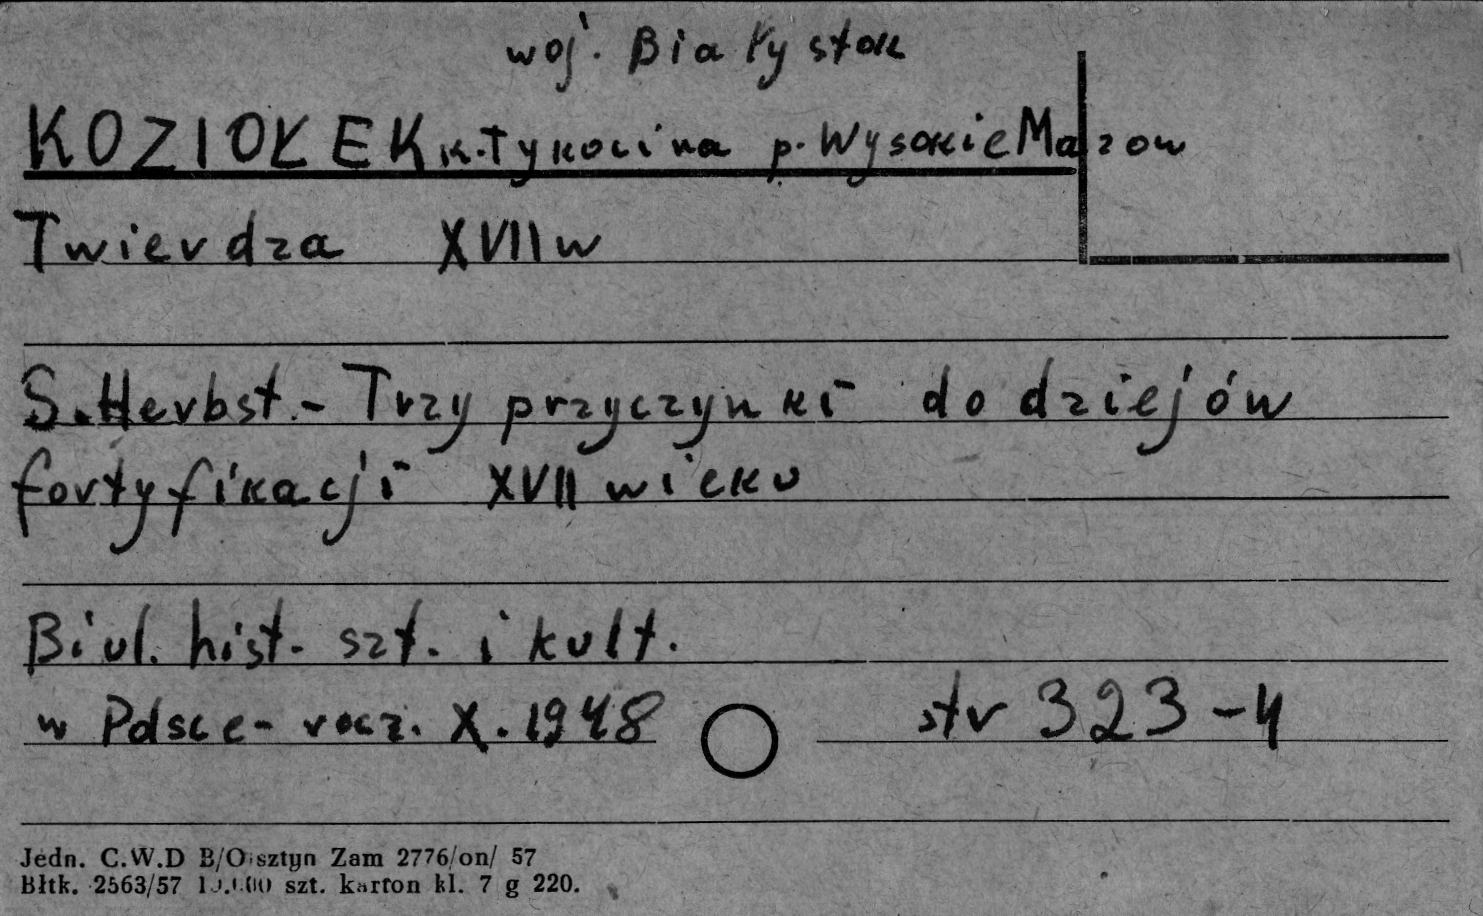 woj. Białystok
KOZIOŁEK k. Tykocina p. Wysokie Mazow
Twierdza XVII w
S. Herbst. - Trzy przyczynki do dziejów
fortyfikacji XVII wieku
Biul. hist. szt. i kult.
w Polsce - rocz. X. 1948 str 323-4
Jedn. C.W.D B/Olsztyn Zam 2776/on/ 57
Błtk. 2563/57 10.000 szt. karton kl. 7 g 220.